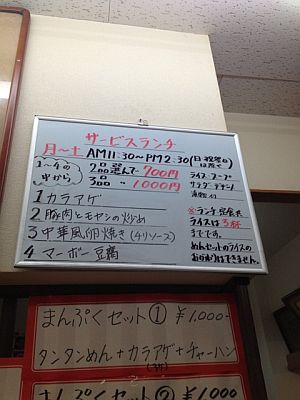 サービスランチ
月~土 AM11:30~PM2:30(日・祝祭日は除く)
1~4の中から
2品選んで700円
3品 〃 1000円
ライス・スープ
サラダ・デザート
漬物付
1 カラアゲ
2 豚肉とモヤシの炒め
3 中華風卵焼き(4リソース)
4 マーボー豆腐
※ランチ・定食共
ライスは3杯
までです。
めんセットのライスの
おかわりはできません。
まんぷくセット① ¥1,000-
タンタンめん+カラアゲ+チャーハン
まんぷくセット② ¥1,000-